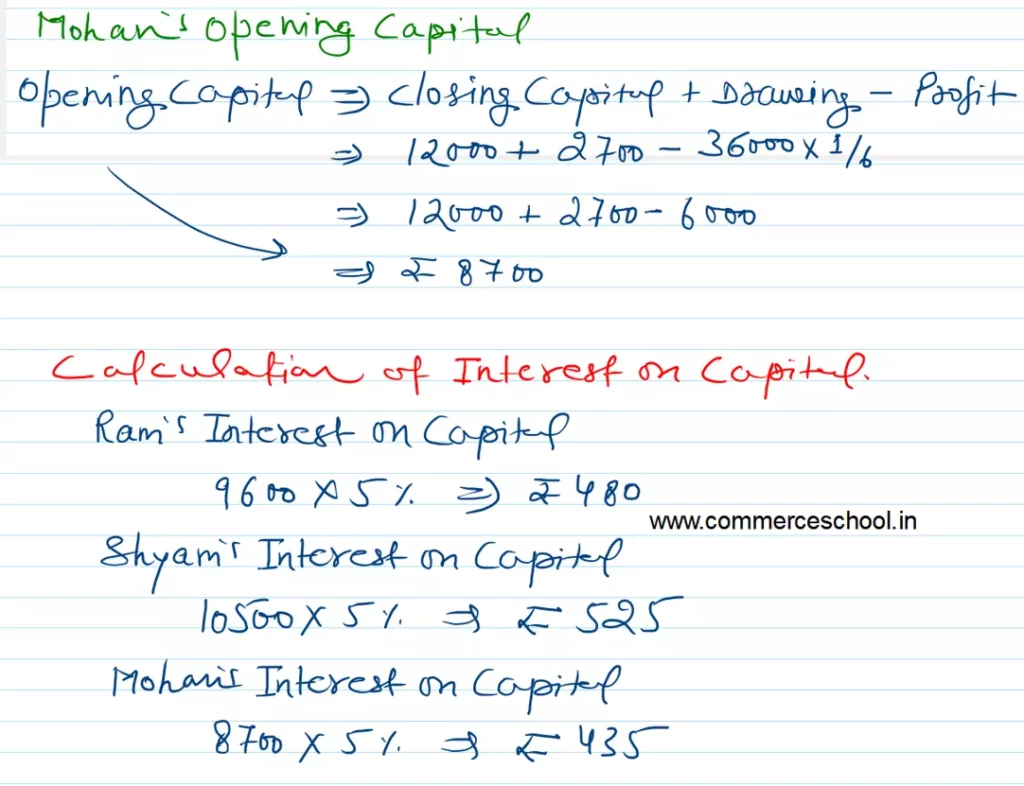 Mohan's Opening Capital
Opening Capital ⇒ Closing Capital + Drawing - Profit
⇒ 12000 + 2700 - 36000 × 1/6
⇒ 12000 + 2700 - 6000
⇒ ₹ 8700
Calculation of Interest on Capital.
Ram's Interest on Capital
9600 × 5 % ⇒ ₹ 480
www.commerceschool.in
Shyam's Interest on Capital
10500 × 5 % ⇒ ₹ 525
Mohan's Interest on Capital
8700 × 5 % ⇒ ₹ 435